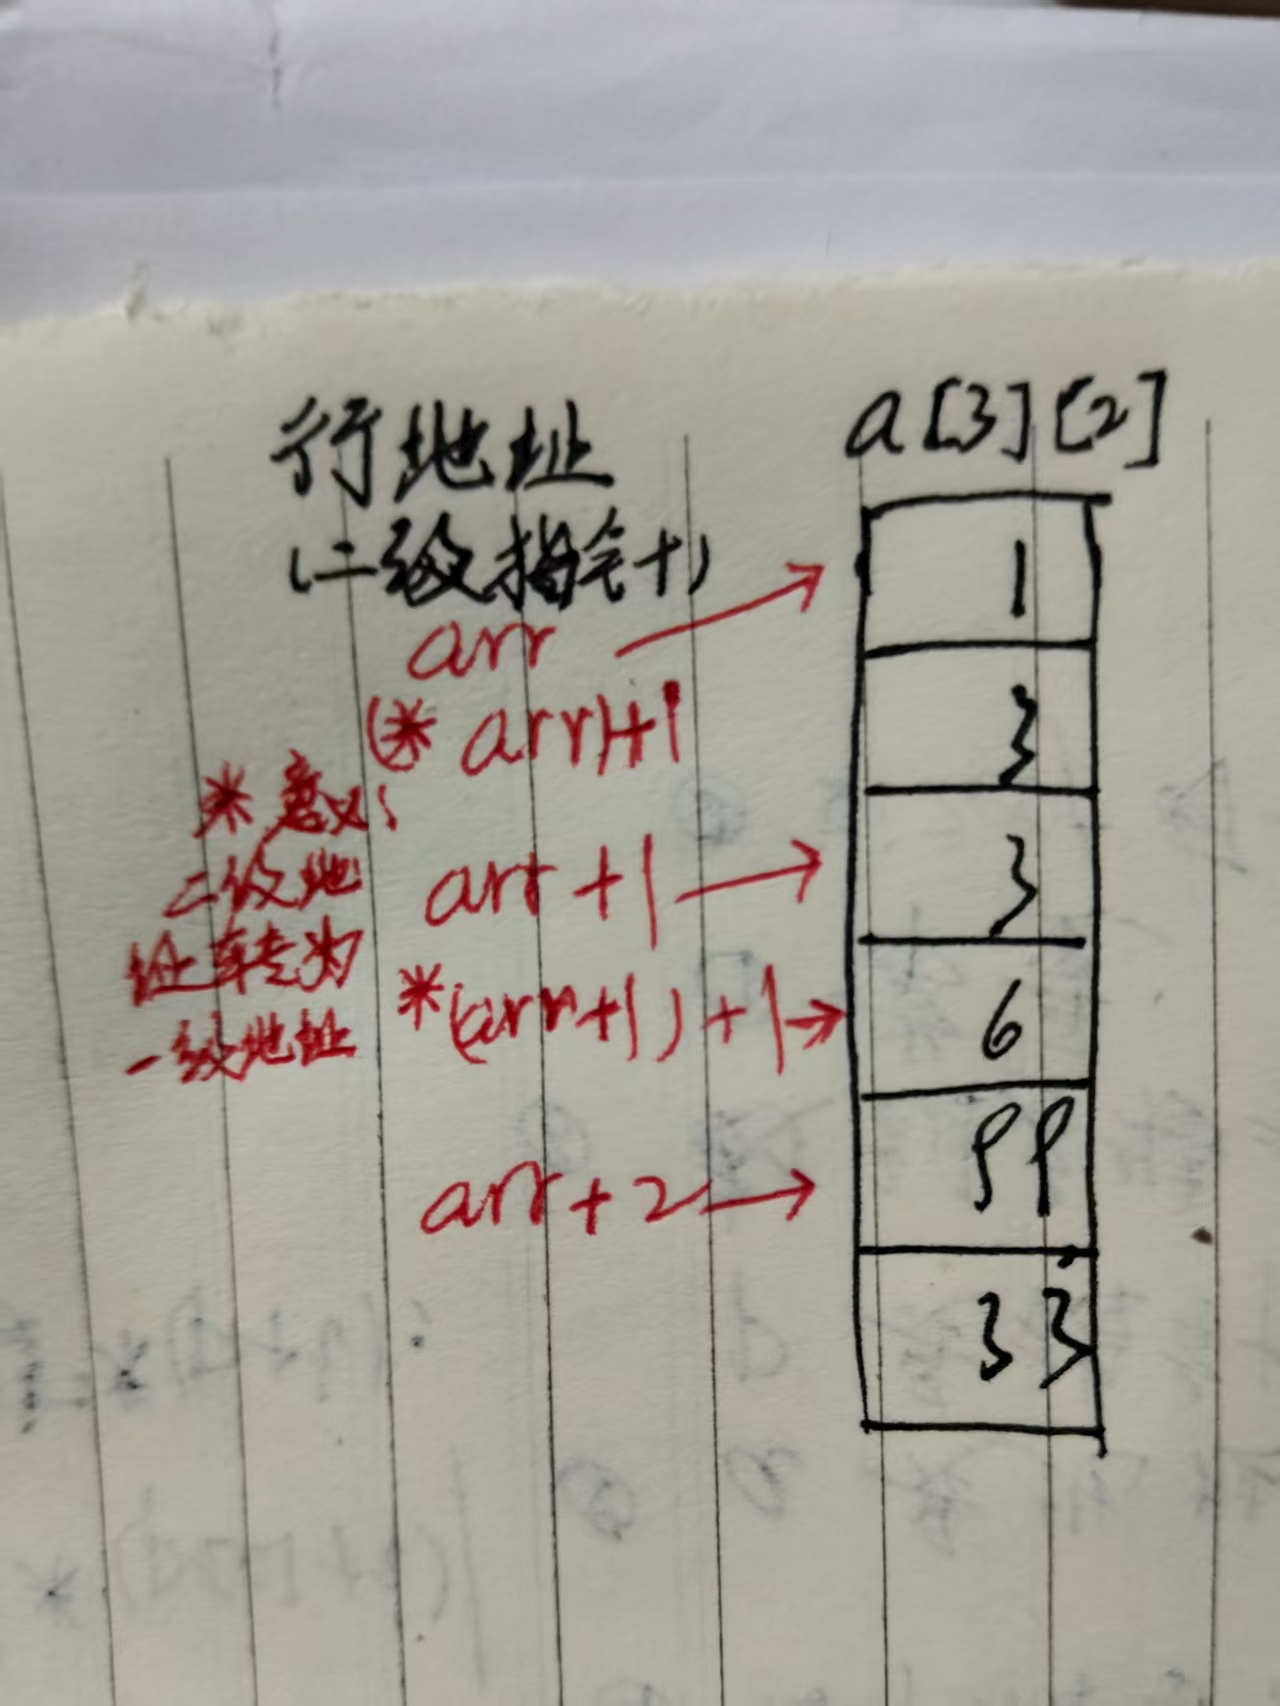 行地址
(二级指针)
arr
(* arr)+1
* 意义:
二级地
址转为
一级地址
arr + 1
*(arr+1) + 1
arr + 2
a[3][2]
1
3
3
6
99
33